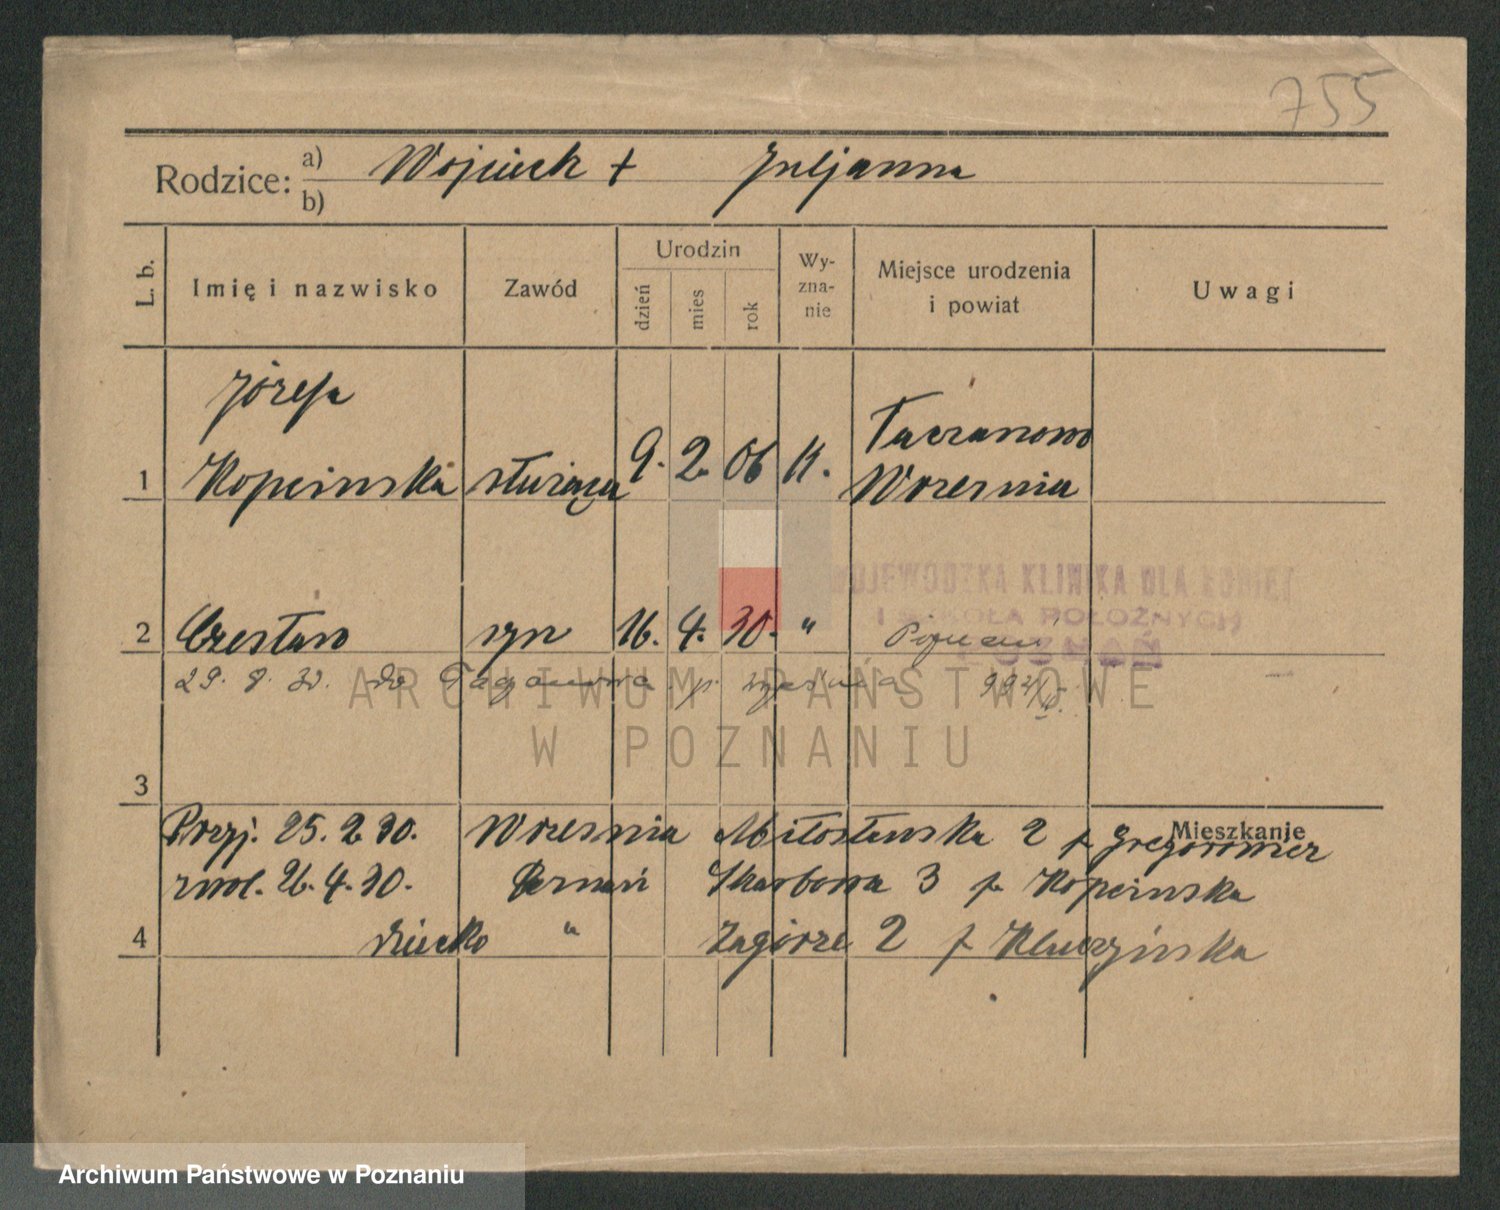 755
Rodzice: a) Wojciech + Juljanna
b)
L. b. Imię i nazwisko Zawód Urodzin dzień mies rok Wy-zna-nie Miejsce urodzenia i powiat Uwagi
Józefa
1 Kopcinska służąca 9. 2. 06 k. Taczanowo
Wrzesnia
WOJEWÓDZKA KLINIKA DLA KOBIET
I SZKOŁA POŁOŻNYCH
POZNAŃ
2 Czesław syn 16. 4. 30. " Poznań
29. 8. 30. do p. Września
3
Przyj. 25. 2. 30. Wrzesnia Miłosławska 2 p. Gregorowicz
Mieszkanie
zwol. 26. 4. 30. Poznań Skarbowa 3 p. Kopcinska
4 dziecko " Zagórze 2 p.
ARCHIWUM PAŃSTWOWE
W POZNANIU
Archiwum Państwowe w Poznaniu